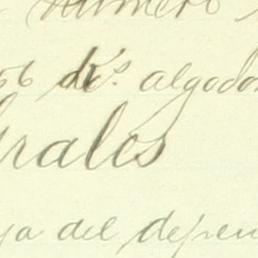 numero
56 drs. algodon
rales
ya del depen